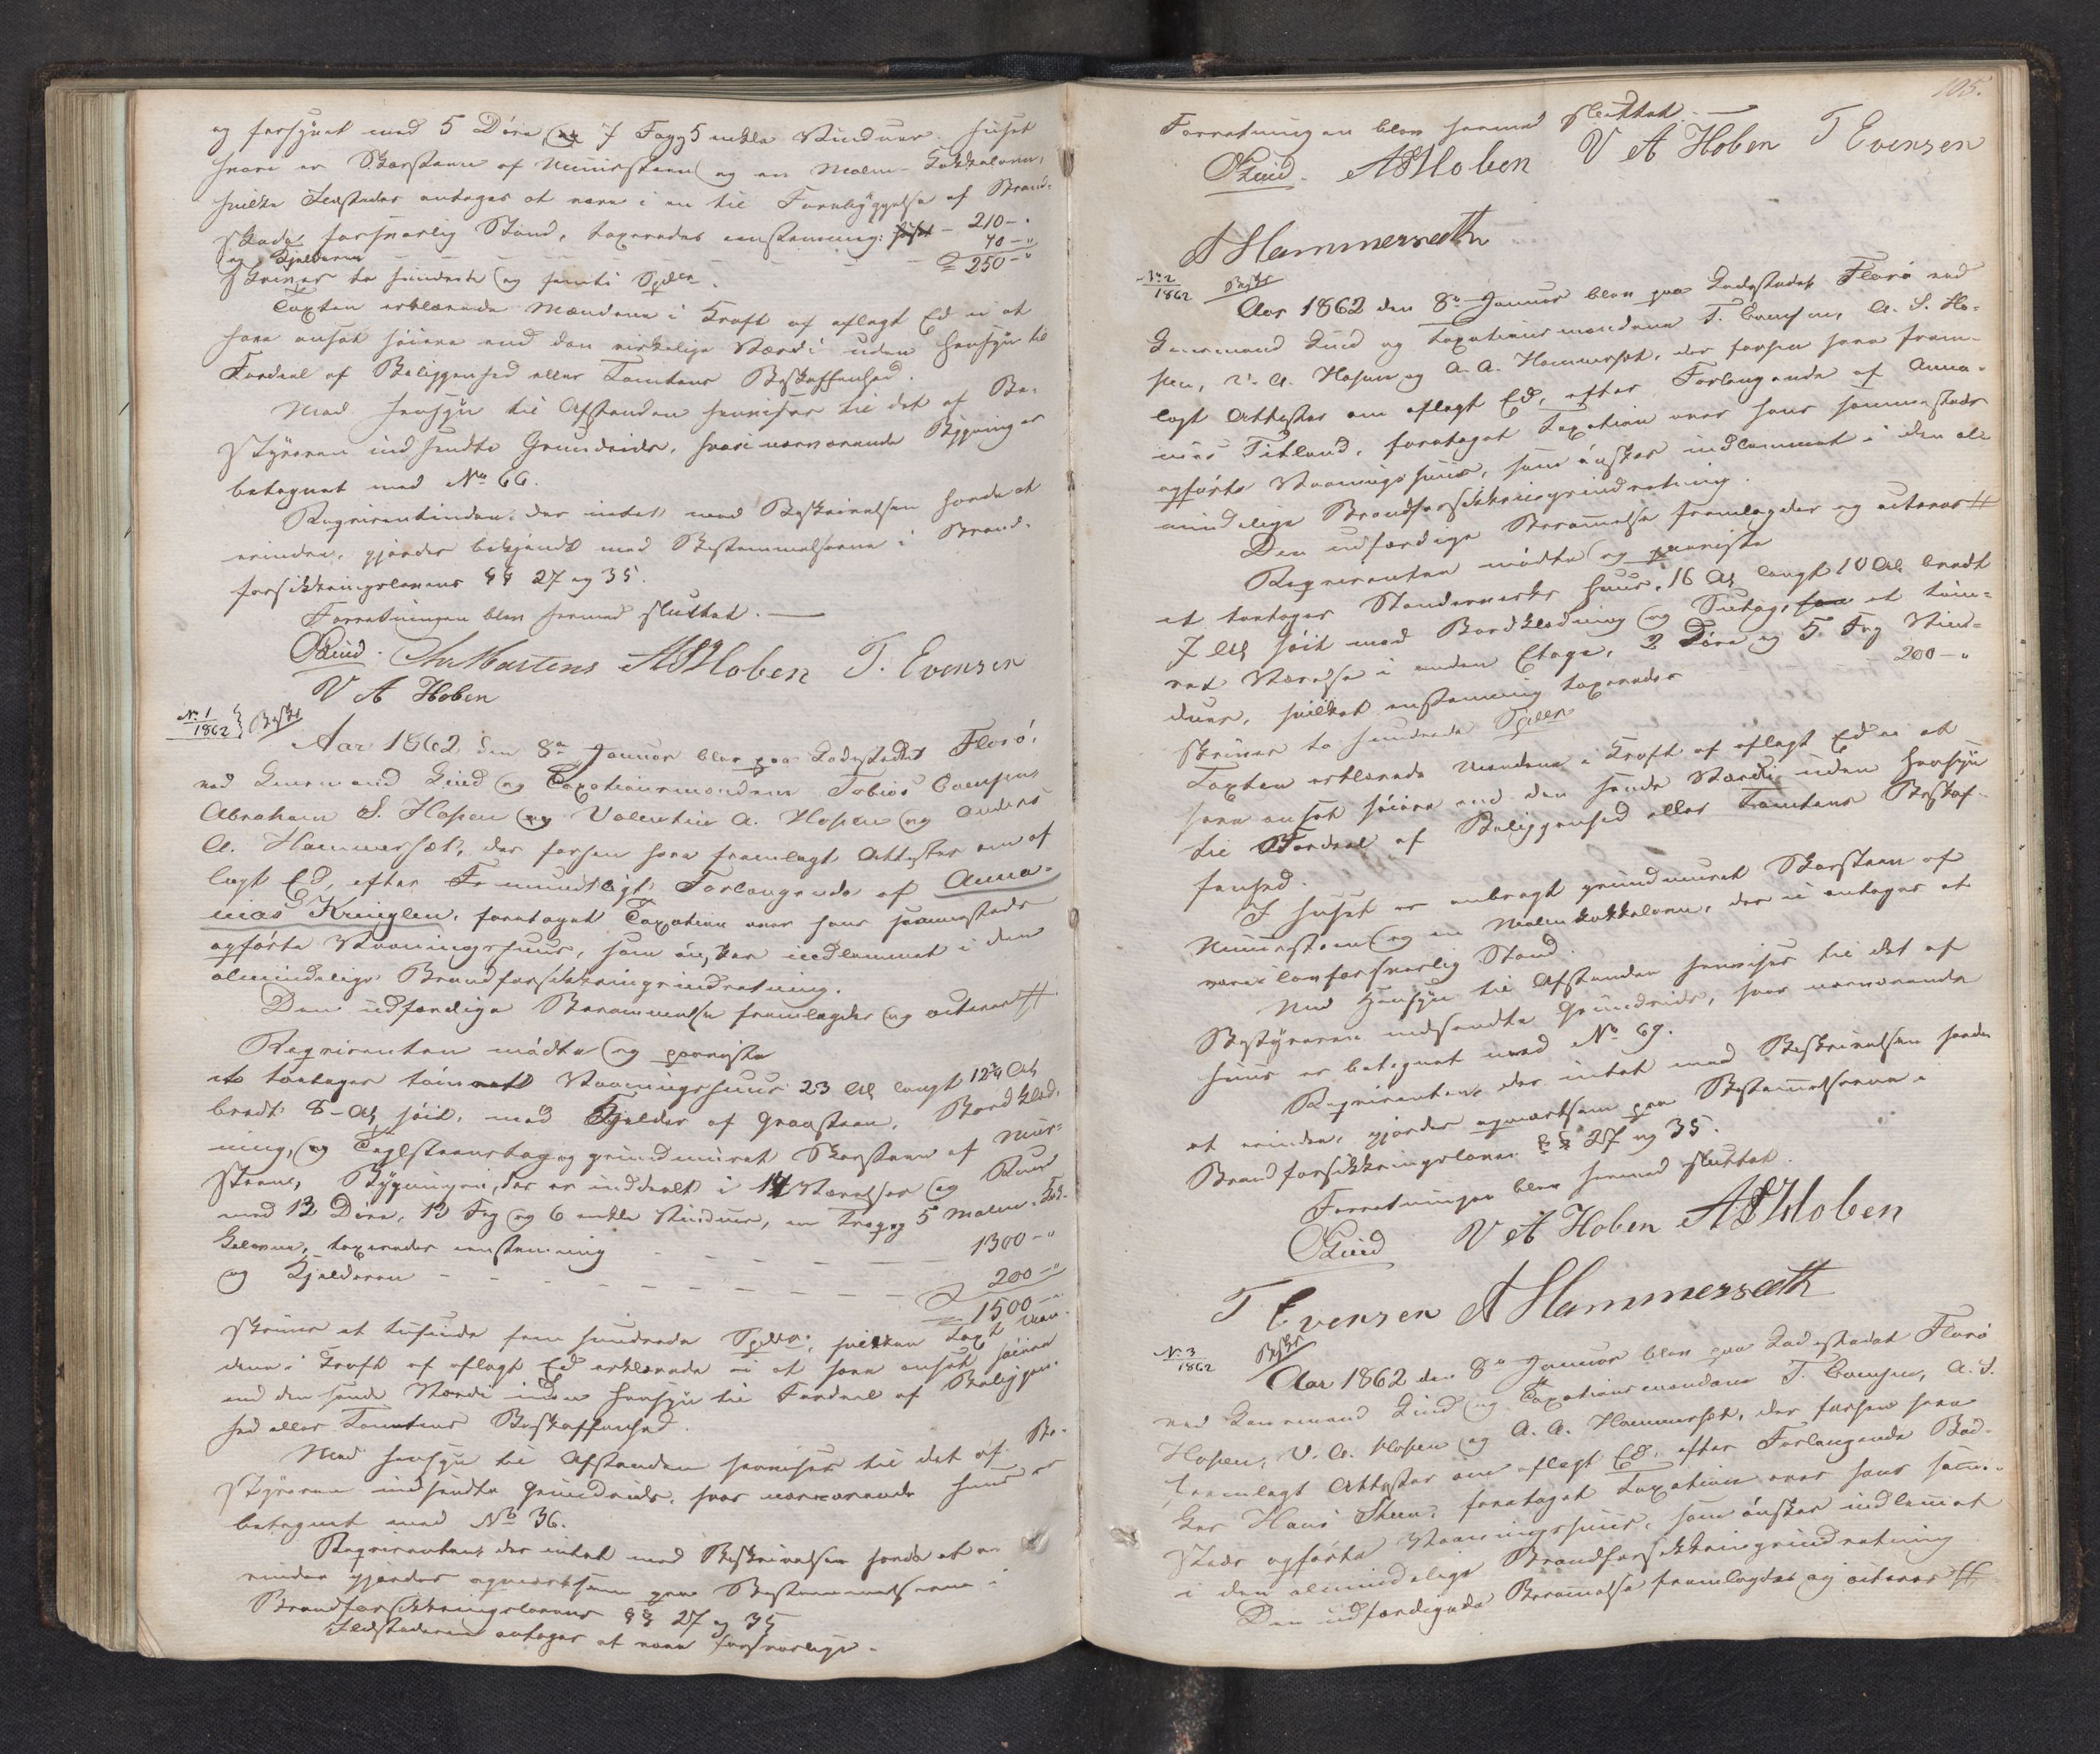 og forsynet med 5 Døre og 7 Fag 5 enkle Vinduer. Huset
hvori er Skorsteen af Muursteen og en Malm-Kakkelovn,
hvilke Ildsteder antages at være i en til Forebyggelse af Brand-
skade forsvarlig Stand, taxeredes eenstemmig: Huset - 210 - "
og Kjelderen - - - - - - 40 - "
= 250 - "
Skriver to hundrede og femti Spdlr.
Taxten erklærede Mændene i Kraft af aflagt Ed ei at
have ansat høiere end den virkelige Værdi uden Hensyn til
Fordeel af Beliggenhed eller Tomtens Beskaffenhed.
Med Hensyn til Afstanden henvises til det af Be-
styreren indsendte Grundrids, hvori nærværende Bygninger
betegnet med No 66.
Reqvirentinden, der intet mod Beskrivelsen havde at
erindre, gjordes bekjendt med Bestemmelserne i Brand-
forsikkringslovens §§ 27 og 35.
Forretningen blev hermed sluttet. —
Lind. Chr Martens A S Hoben T. Evensen
V A Hoben
No 1
1862 Beskr
Aar 1862 den 8de Januar blev paa Ladestedet Florø,
ved Lensmand Lind og Taxationsmændene Tobias Evensen,
Abraham S. Hopen og Valentin A. Hopen og Anders
A. Hammersæt, der forhen have fremlagt Attester om af
lagt Ed, efter mundtligt Forlangende af Anna-
nias Kringlen, foretaget Taxation over hans sammesteds
opførte Vaaningshuus, som ønskes indlemmet i den
almindelige Brandforsikkringsindretning.
Den udfærdige Berammelse fremlagdes og acteres #
Reqvirenten mødte og paaviste
et toetages tømret Vaaningshuus 23 Al langt 12¾ Al
bredt 8 Al høit, med Kjelder af Graasteen, Bordklæd-
ning, og Taglsteenstag og grundmuret Skorsteen af Muur-
steen, Bygningen, der er inddeelt i 14 Værelser og Rum
med 13 Døre, 13 Fag og 6 enkle Vinduer, en Trap og 5 Malm-Kak-
kelovne, taxeredes eenstemmig - - - 1300 - "
og Kjelderen - - - - - - - - - 200 - "
= 1500 - "
skriver et tusinde fem hundrede Spdlr; hvilken Taxt Mæn-
dene i Kraft af aflagt Ed erklærede ei at have ansat høiere
end den sande Værdi uden Hensyn til Fordeel af Beliggen-
hed eller Tomtens Beskaffenhed.
Med Hensyn til Afstanden henvises til det af Be-
styreren indsendte Grundrids, hvor nærværende Huus er
betegnet med No 36.
Reqvirenten, der intet mod Beskrivelsen havde at e-
rindre gjordes opmærksom paa Bestemmelserne i
Brandforsikkringslovens §§ 27 og 35
Ildstederne antages at være forsvarlige.
105.
Forretningen blev hermed sluttet. —
Lind. A S Hoben V A Hoben T Evensen
A Hammersæth
No 2
1862 Beskr
Aar 1862 den 8de Januar blev paa Ladestedet Florø ved
Lensmand Lind og Taxationsmændene T. Evensen, A. S. Ho-
pen, V. A. Hopen og A. A. Hammersæt, der forhen have frem-
lagt Attester om aflagt Ed, efter Forlangende af Anna-
nias Titland, foretaget Taxation over hans sammesteds
opførte Vaaningshuus, som ønskes indlemmet i den al-
mindelige Brandforsikkringsindretning.
Den udfærdige Berammelse fremlagdes og acteres #
Reqvirenten mødte og paaviste
et toetages Standerverks Huus, 16 Al langt 10 Al bredt
7 Al høit med Bordklædning og Sutag, et tøm-
ret Værelse i anden Etage, 2 Døre og 5 Fag Vind-
duer, hvilket eenstemmig taxeredes 200 - "
Skriver to hundrede Spdlr
Taxten erklærede Mændene i Kraft af aflagt Ed ei at
have ansat høiere end den sande Værdi uden Hensyn
til Fordeel af Beliggenhed eller Tomtens Beskaf-
fenhed.
I Huset er anbragt grundmuret Skorsteen af
Muursteen og en Malmkakkelovn, der ei antages at
være i lovforsvarlig Stand.
Med Hensyn til Afstanden henvises til det af
Bestyreren indsendte Grundrids, hvor nærværende
Huus er betegnet med No 69.
Reqvirenten, der intet mod Beskrivelsen havde
at erindre, gjordes opmærksom paa Bestemmelserne i
Brandforsikkringsloven §§ 27 og 35.
Forretningen blev hermed sluttet.
Lind V A Hoben A S Hoben
T Evensen A Hammersæth
No 3
1862 Beskr
Aar 1862 den 8de Januar blev paa Ladestedet Florø
ved Lensmand Lind og Taxationsmændene T. Evensen, A. S.
Hopen, V. A. Hopen og A. A. Hammersæt, der forhen have
fremlagt Attester om aflagt Ed, efter Forlangende Bød-
ker Hans Steen, foretaget Taxation over hans samme-
steds opførte Vaaningshuus, som ønskes indlemmet
i den almindelige Brandforsikkringsindretning
Den udfærdigede Berammelse fremlagdes og acteres #